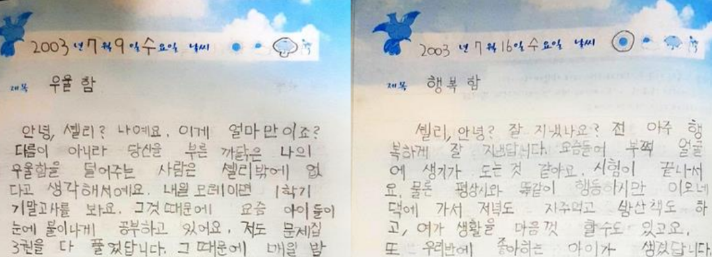 2003년 7월 9일 수요일 날씨
제목 우울함
안녕, 셸리? 나예요. 이게 얼마만이죠?
다름이 아니라 당신을 부른 까닭은 나의
우울함을 덜어주는 사람은 셸리밖에 없
다고 생각해서예요. 내일 모레이면 1학기
기말고사를 봐요. 그것 때문에 요즘 아이들이
눈에 불이나게 공부하고 있어요. 저도 문제집
3권을 다 풀었답니다. 그 때문에 매일 밤
2003년 7월 16일 수요일 날씨
제목 행복함
셸리, 안녕? 잘 지냈나요? 전 아주 행
복하게 잘 지낸답니다. 요즘들어 부쩍 얼굴
에 생기가 도는 것 같아요. 시험이 끝나서
요. 물론 평상시와 똑같이 행동하지만 이모네
댁에 가서 저녁도 자주먹고 밤산책도 하
고, 여가 생활을 마음껏 할수도 있고요.
또 우리반에 좋아하는 아이가 생겼답니다.